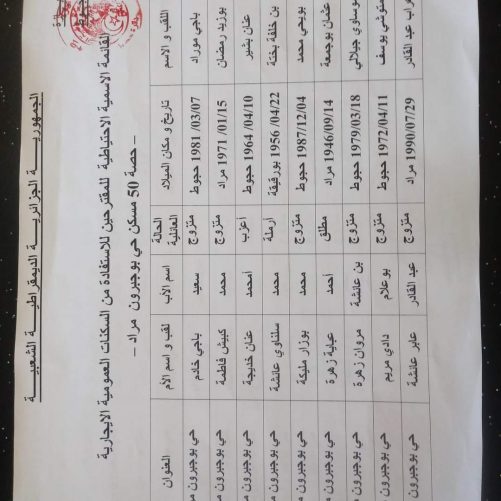 الجمهوريـــة الجزائريـــة الديمقراطيـــة الشعبيـــة
القائمة الاسمية الاحتياطية للمقترحين للاستفادة من السكنات العمومية الايجارية
– حصة 50 مسكن حي بوجبرون مراد –
اللقب و الاسم تاريخ و مكان الميلاد الحالة العائلية اسم الأب لقب و اسم الأم العنوان
باجي موراد 1981/03/07 حجوط متزوج سعيد باجي خادم حي بوجبرون
بوزيد رمضان 1971/01/15 مراد متزوج محمد كبيش فاطمة حي بوجبرون
عنان بشير 1964/04/10 حجوط أعزب امحمد عنان خديجة حي بوجبرون
بن خلفة بختة 1956/04/22 بورقيقة أرملة محمد سلناوي عائشة حي بوجبرون
بويحي محمد 1987/12/04 حجوط متزوج محمد بوزار مليكة حي بوجبرون
عثمان بوجمعة 1946/09/14 مراد مطلق أحمد عباية زهرة حي بوجبرون
موساوي جيلالي 1979/03/18 حجوط متزوج بن عائشة مروان زهرة حي بوجبرون
يوسف 1972/04/11 حجوط متزوج بوعلام دادي مريم حي بوجبرون
عبد القادر 1990/07/29 مراد متزوج عبد القادر عابر عائشة حي بوجبرون